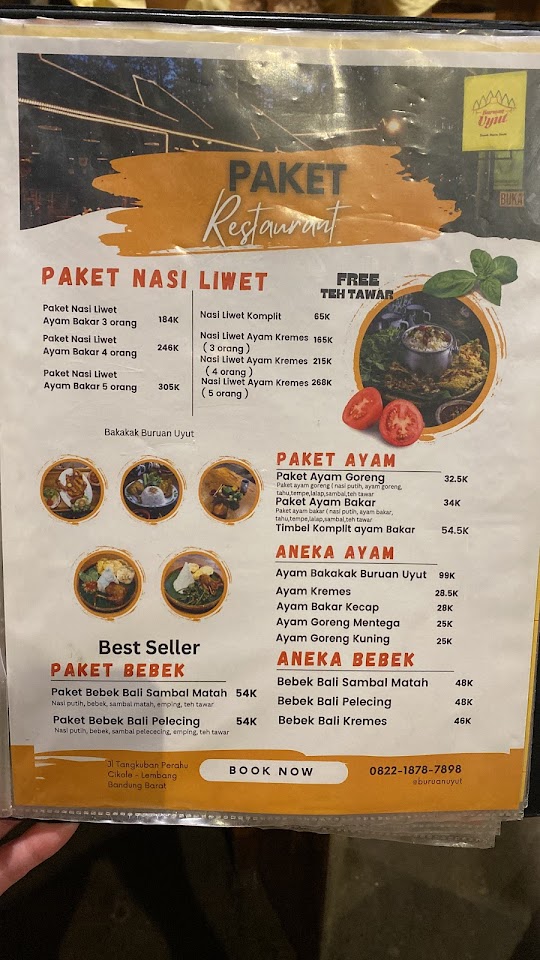 Buruan
Uyut
BUKA
PAKET
Restaurant
PAKET NASI LIWET
Paket Nasi Liwet
Ayam Bakar 3 orang 184K
Paket Nasi Liwet
Ayam Bakar 4 orang 246K
Paket Nasi Liwet
Ayam Bakar 5 orang 305K
Nasi Liwet Komplit 65K
Nasi Liwet Ayam Kremes 165K
( 3 orang )
Nasi Liwet Ayam Kremes 215K
( 4 orang )
Nasi Liwet Ayam Kremes 268K
( 5 orang )
FREE
TEH TAWAR
Bakakak Buruan Uyut
PAKET AYAM
Paket Ayam Goreng 32.5K
Paket ayam goreng ( nasi putih, ayam goreng,
tahu,tempe,lalap,sambal,teh tawar
Paket Ayam Bakar 34K
Paket ayam bakar ( nasi putih, ayam bakar,
tahu,tempe,lalap,sambal,teh tawar
Timbel Komplit ayam Bakar 54.5K
ANEKA AYAM
Ayam Bakakak Buruan Uyut 99K
Ayam Kremes 28.5K
Ayam Bakar Kecap 28K
Ayam Goreng Mentega 25K
Ayam Goreng Kuning 25K
Best Seller
PAKET BEBEK
Paket Bebek Bali Sambal Matah 54K
Nasi putih, bebek, sambal matah, emping, teh tawar
Paket Bebek Bali Pelecing 54K
Nasi putih, bebek, sambal pelececing, emping, teh tawar
ANEKA BEBEK
Bebek Bali Sambal Matah 48K
Bebek Bali Pelecing 48K
Bebek Bali Kremes 46K
Jl Tangkuban Perahu
Cikole - Lembang
Bandung Barat
BOOK NOW
0822-1878-7898
@buruanuyut